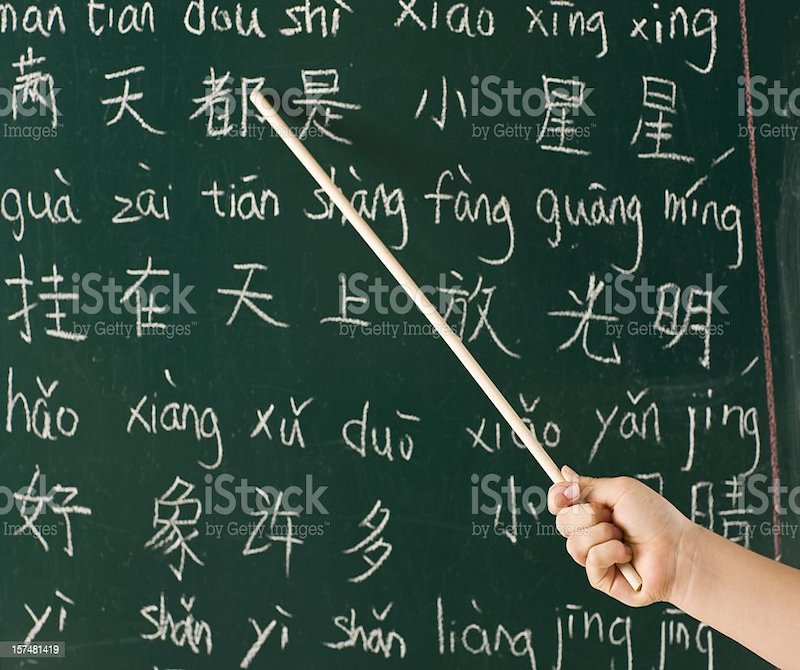 man tian dou shì xiao xīng xing
满天都是小星星
guà zài tiān shàng fàng guāng míng
挂在天上放光明
hǎo xiàng xǔ duō xiǎo yǎn jīng
好象许多小睛
yì shǎn yì shǎn liàng jīng jīng
iStock
by Getty Images
157481419